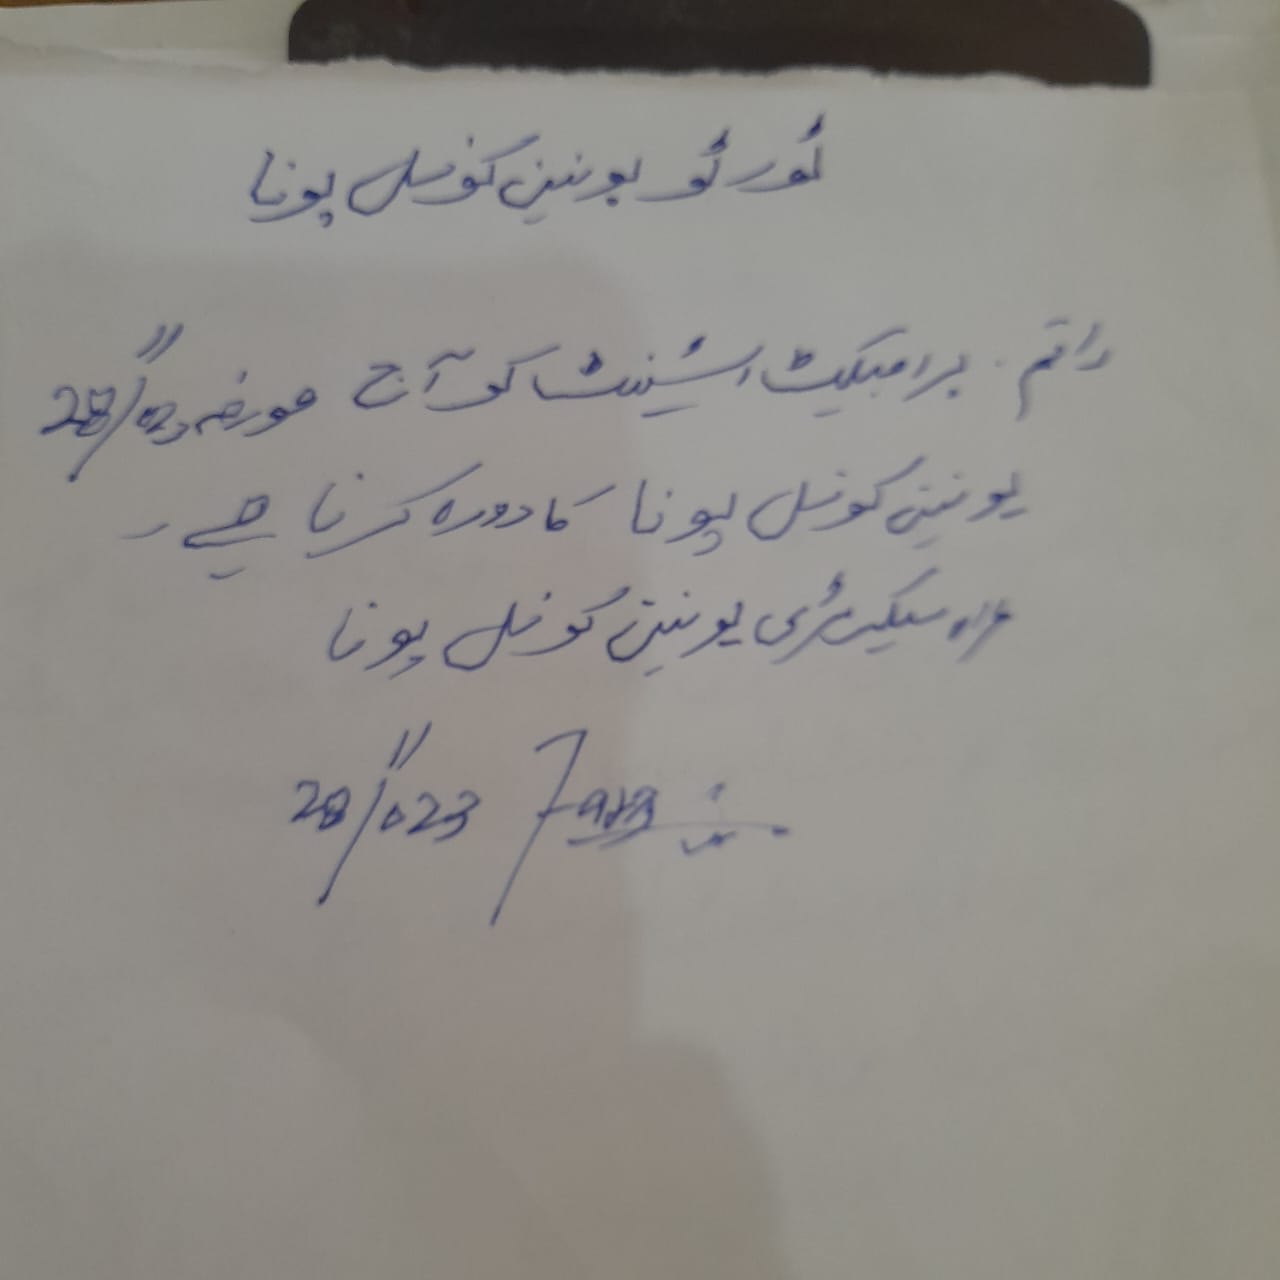 ٹور ٹو یونین کونسل پونا
راقم . پراجیکٹ اسسٹنٹ کو آج مورخہ 28/11/023
یونین کونسل پونا کا دورہ کرنا ہے ۔
سیکریٹری یونین کونسل پونا
28/11/023